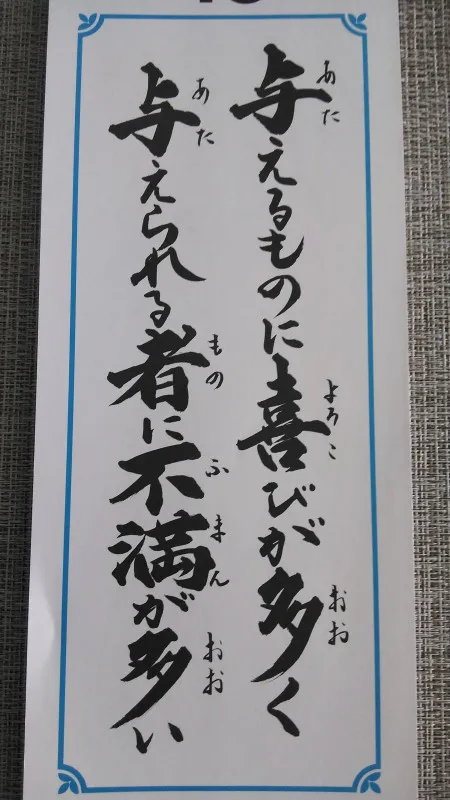 与えるものに喜びが多く
与えられる者に不満が多い